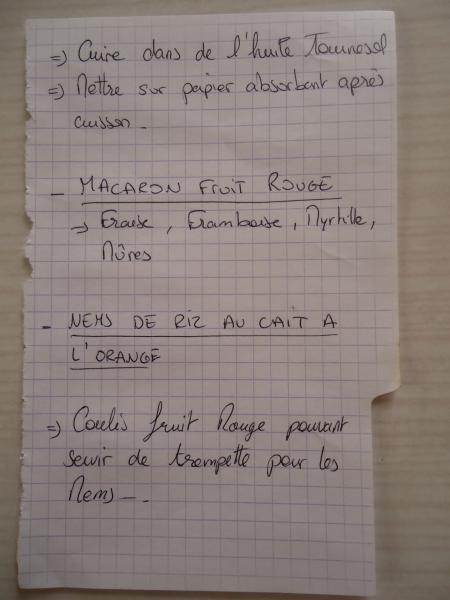 => Cuire dans de l'huile Tournesol
=> Mettre sur papier absorbant après
cuisson -
- MACARON FRUIT ROUGE
-> Fraise, Framboise, Myrtille,
Mûres
- NEMS DE RIZ AU LAIT A
L'ORANGE
=> Coulis fruit Rouge pouvant
servir de trempette pour les
Nems -.